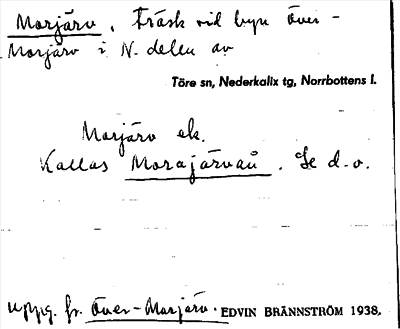 Morjärv. Träsk vid byn Över-
Morjärv i N. delen av
Töre sn, Nederkalix tg, Norrbottens l.
Morjärv ek.
Kallas Morajärvaů. Se d.o.
uppg. fr. Över-Morjärv. EDVIN BRÄNNSTRÖM 1938.